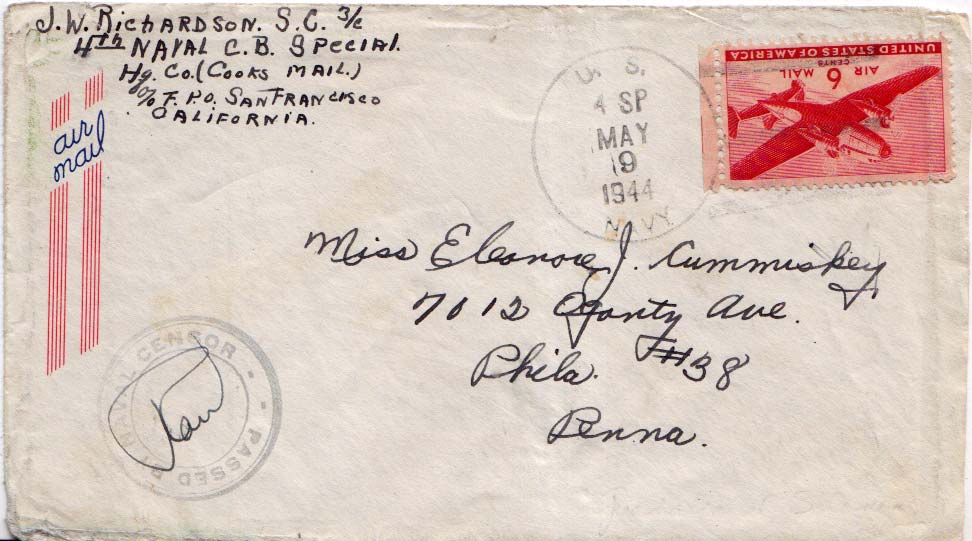 J. W. Richardson. S.C. 3/c
4th Naval C. B. Special.
Hq. Co. (Cooks Mail.)
c/o F. P.O. San Francisco
California.
air
mail
U. S.
4 SP
MAY
9
1944
NAVY
UNITED STATES OF AMERICA
CENTS
6
AIR MAIL
Miss Eleanore J. Cummiskey
7012 Ogontz Ave.
Phila. #38
Penna.
PASSED BY NAVAL CENSOR